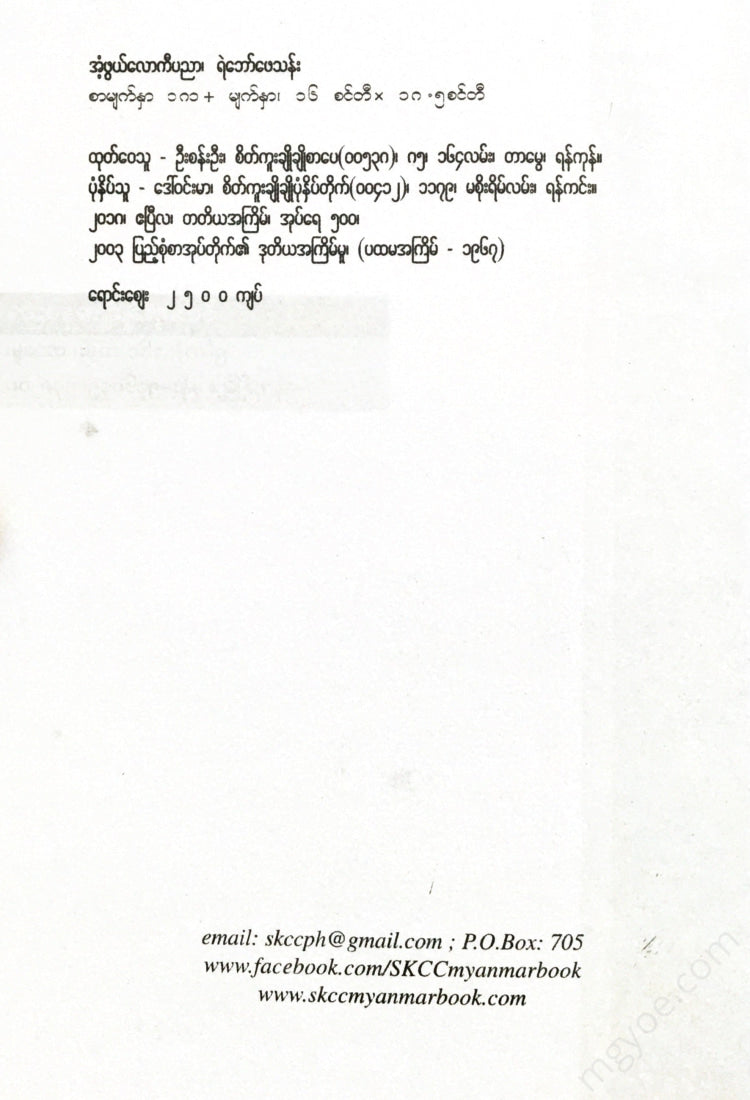 အံ့ဖွယ်လောကီပညာ၊ ရဲဘော်ဖေသန်း
စာမျက်နှာ ၁၈၁ + မျက်နှာ၊ ၁၆ စင်တီ × ၁၈.၅စင်တီ
ထုတ်ဝေသူ - ဦးစန်းဦး၊ စိတ်ကူးချိုချိုစာပေ(၀၀၅၃၈)၊ ၈၅၊ ၁၆၄လမ်း၊ တာမွေ၊ ရန်ကုန်။
ပုံနှိပ်သူ - ဒေါ်ဝင်းမာ၊ စိတ်ကူးချိုချိုပုံနှိပ်တိုက်(၀၀၄၁၂)၊ ၁၁၇၉၊ မစိုးရိမ်လမ်း၊ ရန်ကင်း။
၂၀၁၈၊ ဧပြီလ၊ တတိယအကြိမ်၊ အုပ်ရေ ၅၀၀၊
၂၀၀၃ ပြည့်စုံစာအုပ်တိုက်၏ ဒုတိယအကြိမ်မူ၊ (ပထမအကြိမ် - ၁၉၆၇)
ရောင်းဈေး ၂၅၀၀ ကျပ်
email: skccph@gmail.com ; P.O.Box: 705
www.facebook.com/SKCCmyanmarbook
www.skccmyanmarbook.com
mgyoe.com